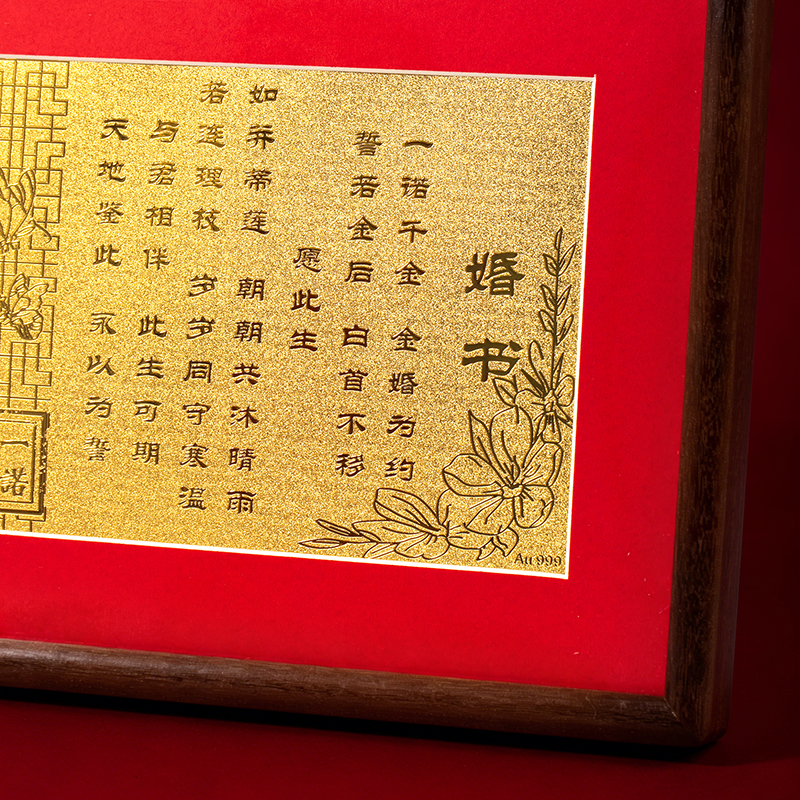 婚书
一诺千金 金婚为约
誓若金后 白首不移
愿此生
如并蒂莲 朝朝共沐晴雨
若连理枝 岁岁同守寒温
与君相伴 此生可期
天地鉴此 永以为誓
一諾
Au 999